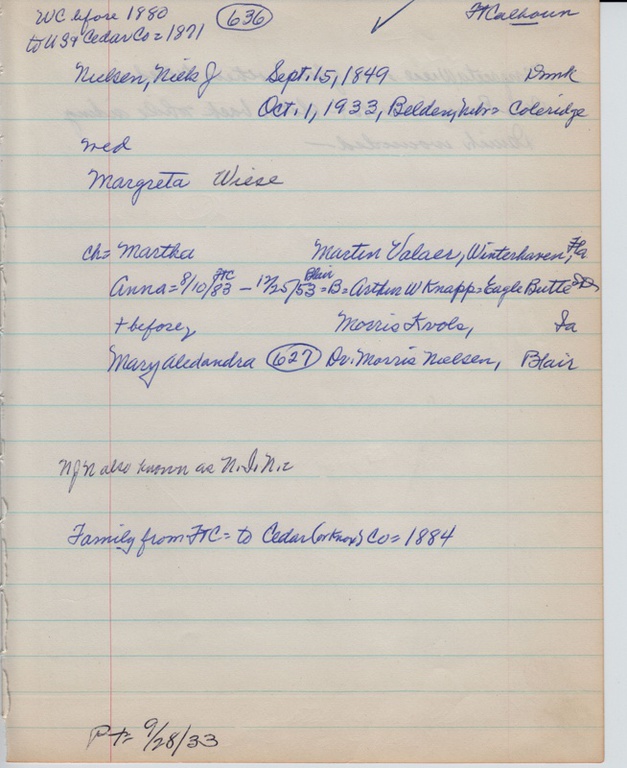 WC before 1880 (636) Ft Calhoun
to US & Cedar Co = 1871
Nielsen, Nick J Sept. 15, 1849 Dnmk
Oct. 1, 1933, Belden, Nebr = Coleridge
med
Margreta Wiese
ch = Martha Martin Valaer, Winterhaven, Fla
Anna = 8/10/83 FTC – 12/25/53 Blair = B = Arthur W Knapp = Eagle Butte SD
+ before, Morris Kvols, Ia
Mary Aledandra (627) Dr. Morris Nielsen, Blair
NJN also known as N.I.N.
Family from FTC = to Cedar (or Knox) Co = 1884
P-t = 9/28/33